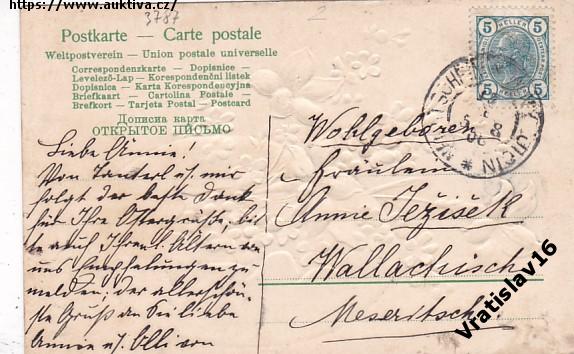 https://www.auktiva.cz/
3787
2
Postkarte — Carte postale
Weltpostverein — Union postale universelle
Correspondenzkarte - Dopisnice -
Levelező-Lap - Korespondenční listek
Dopisnica - Karta Korespondencyjna
Briefkaart - Cartolina Postale -
Brefkort - Tarjeta Postal - Postcard
Дописна карта
ОТКРЫТОЕ ПИСЬМО
5 HELLER 5
5 5
JIČIN
Liebe Annie!
Von Tanterl u. mir
folgt der beste Dank
für Ihre Ostergrüße, bit
te auch Ihren l. Ältern von
uns Empfehlungen zu
melden; der allerschön
ste Gruß an Sie liebe
Annie u. Olli von
Wohlgeboren
Fräulein
Annie Ježíšek
Wallachisch
Meseritsch
Vratislav16